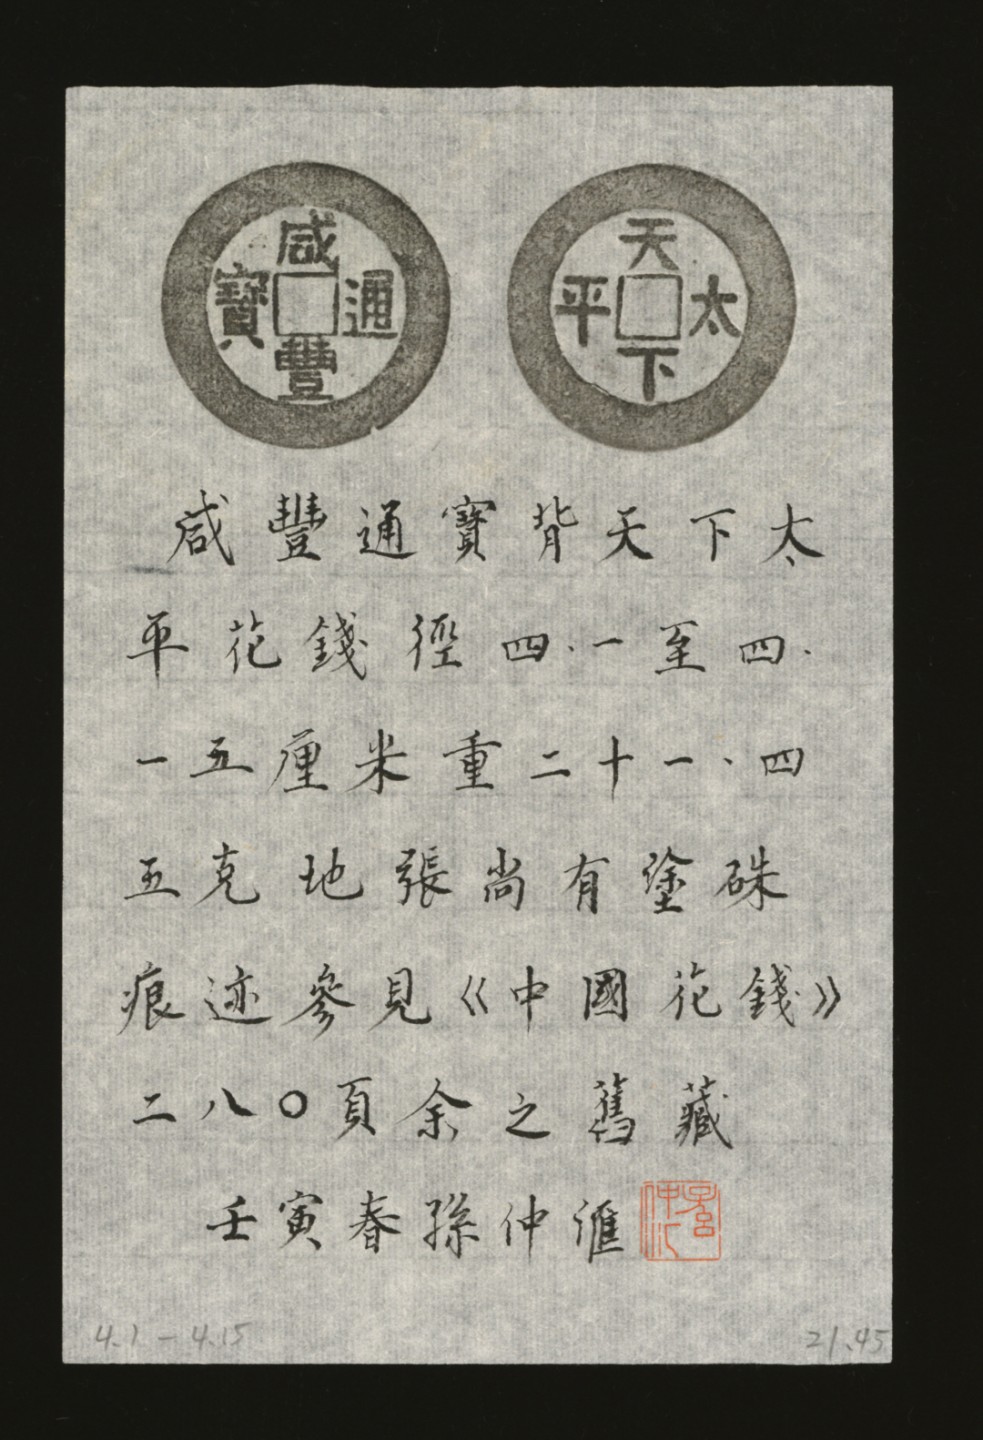 咸豐通寶
天下太平
咸豐通寶背天下太
平花錢徑四.一至四.
一五厘米重二十一.四
五克地張尚有塗硃
痕迹參見《中國花錢》
二八〇頁余之舊藏
壬寅春孫仲滙
4.1-4.15
21.45